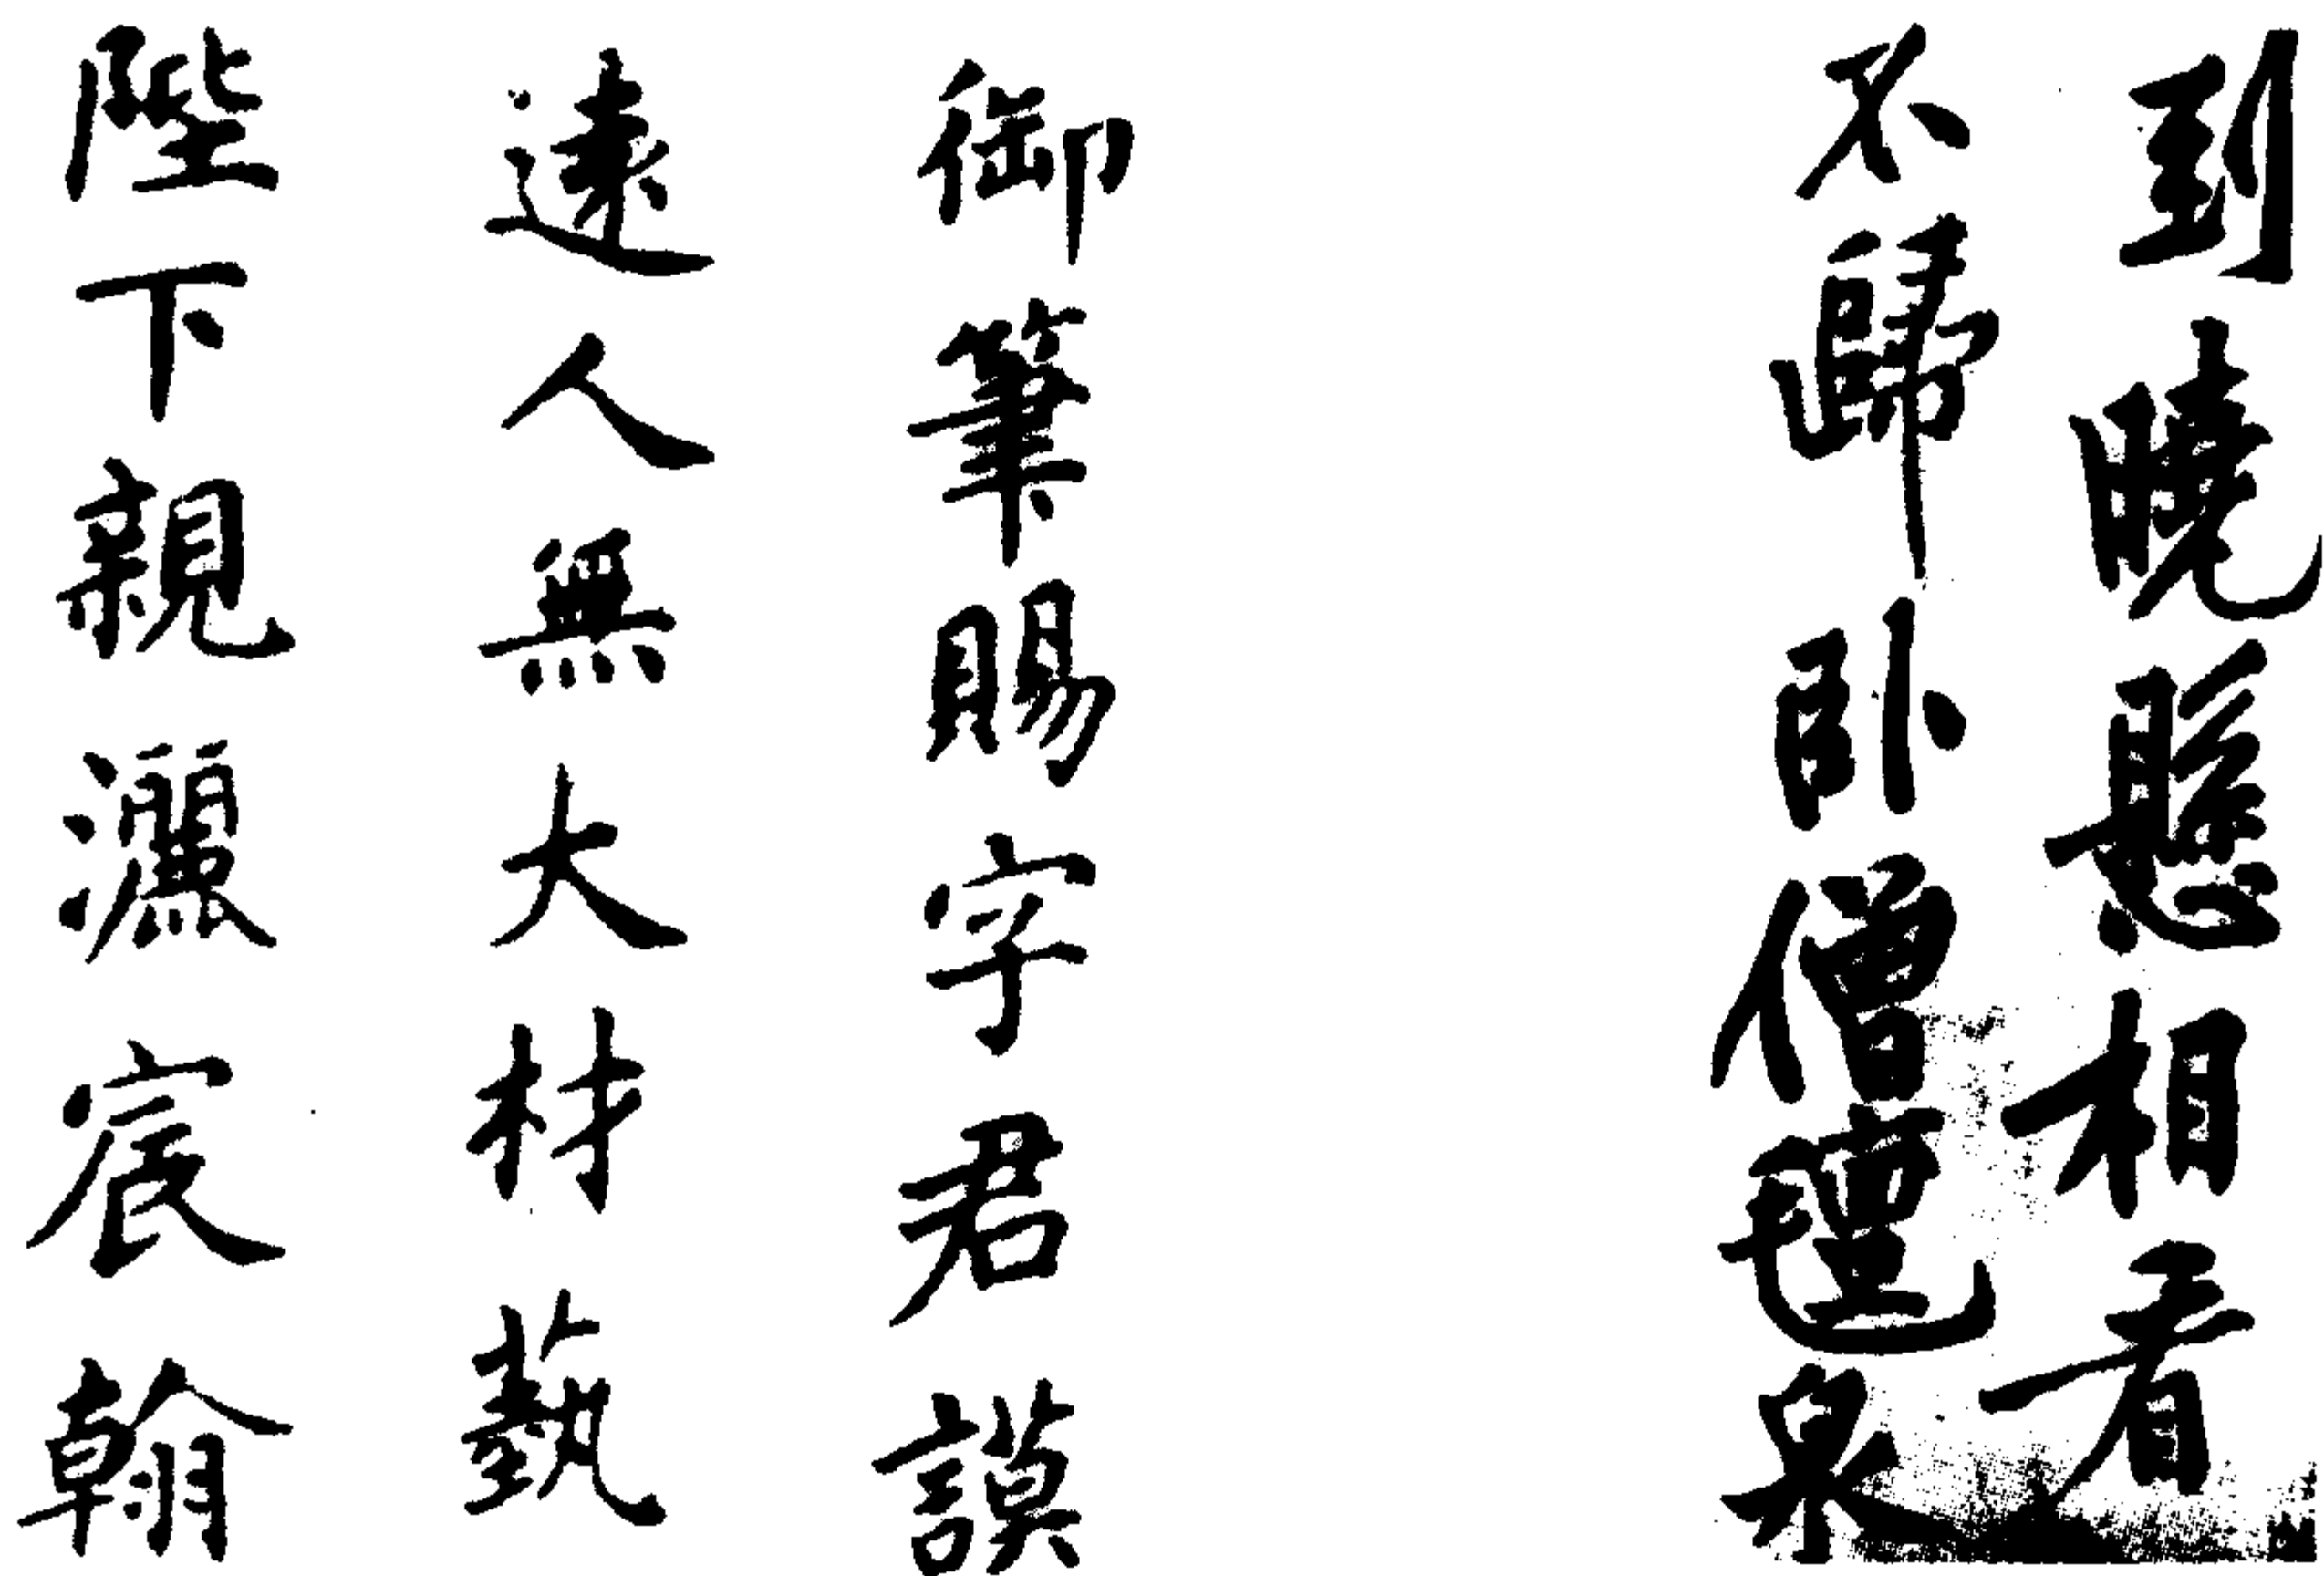 到曉懸相看
不歸卧僧氊泉
御筆賜字君謨
遠人無大材藝
陛下親灑宸翰